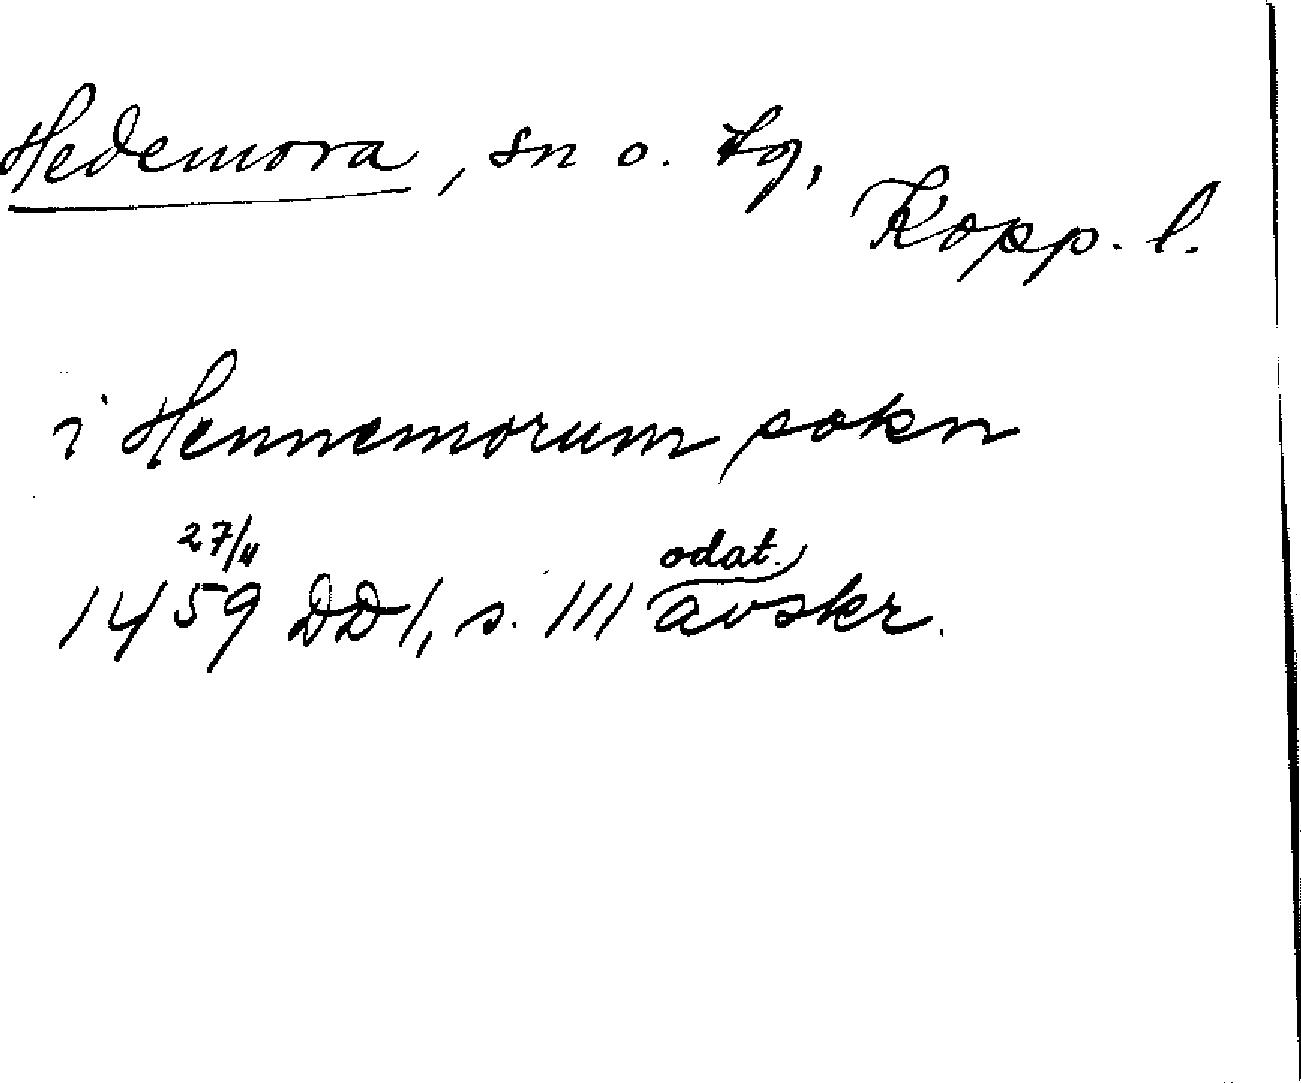 Hedemora, sn o. tg,
Kopp. l.
i Hennemorum sokn
27/11 odat.
1459 DD 1, s. 111 avskr.